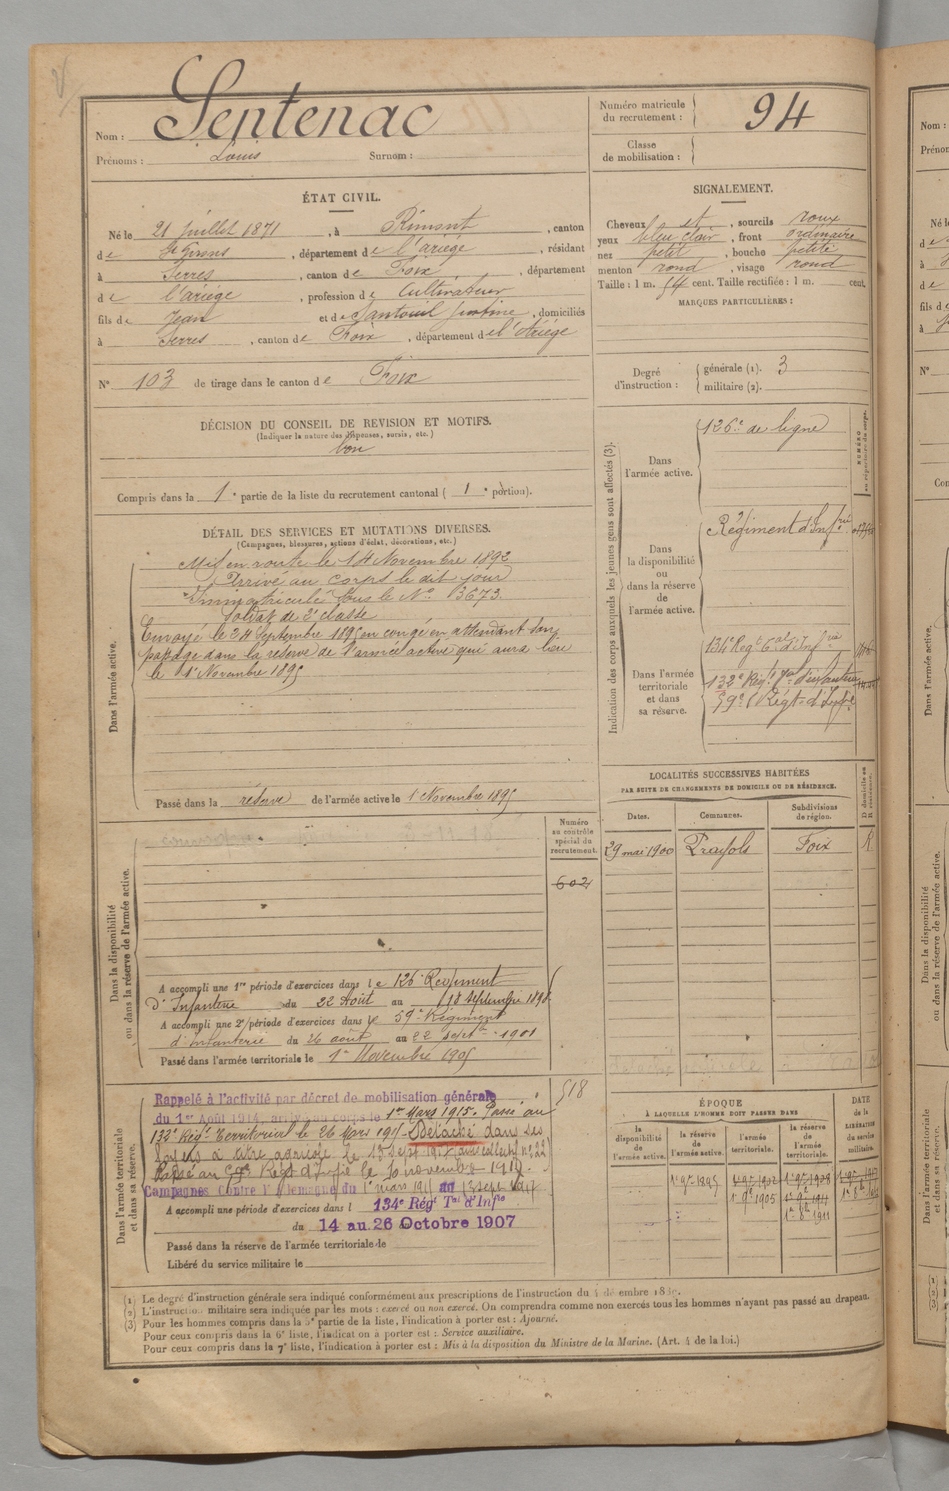 Septenac
Nom :
Prénoms : Louis Surnom :
Numéro matricule
du recrutement : 94
Classe
de mobilisation :
ÉTAT CIVIL.
Né le 21 juillet 1871, à Rimont, canton
de St Girons, département de l'ariège, résidant
à Serres, canton de Foix, département
de l'ariège, profession de Cultivateur
fils de Jean et de Santouil, domiciliés
à Serres, canton de Foix, département de l'Ariège
N° 103 de tirage dans le canton de Foix
SIGNALEMENT.
Cheveux et, sourcils roux
yeux bleu clair, front ordinaire
nez petit, bouche petite
menton rond, visage rond
Taille : 1 m. 54 cent. Taille rectifiée : 1 m. cent.
MARQUES PARTICULIÈRES :
Degré
d'instruction :
générale (1). 3
militaire (2).
DÉCISION DU CONSEIL DE REVISION ET MOTIFS.
(Indiquer la nature des dispenses, sursis, etc.)
bon
Compris dans la 1e partie de la liste du recrutement cantonal ( 1e portion).
DÉTAIL DES SERVICES ET MUTATIONS DIVERSES.
(Campagnes, blessures, actions d'éclat, décorations, etc.)
Dans l'armée active.
Mis en route le 14 Novembre 1892
Arrivé au corps le dit jour
Immatriculé sous le N° 3673.
Soldat de 2e classe
Envoyé le 24 Septembre 1895 en congé en attendant son
passage dans la réserve de l'armée active qui aura lieu
le 1 Novembre 1895
Passé dans la réserve de l'armée active le 1 Novembre 1895
Indication des corps auxquels les jeunes gens sont affectés (3).
NUMÉRO
au répertoire du corps.
Dans
l'armée active.
126e de ligne
Dans
la disponibilité
ou
dans la réserve de
l'armée active.
Régiment d'Infrie
Dans l'armée
territoriale
et dans
sa réserve.
134e Régt tal d'Infrie
132e Régt tal d'infanterie
59e Régt d'Infie
LOCALITÉS SUCCESSIVES HABITÉES
PAR SUITE DE CHANGEMENTS DE DOMICILE OU DE RÉSIDENCE.
Dates.
Communes.
Subdivisions
de région.
D domicile ou
R résidence.
29 mai 1900 Prayols Foix R
Dans la disponibilité
ou dans la réserve de l'armée active.
Numéro
au contrôle
spécial du
recrutement.
602
A accompli une 1re période d'exercices dans le 126e Régiment
d'Infanterie du 22 Août au 18 Septembre 1898
A accompli une 2e période d'exercices dans le 59e Régiment
d'infanterie du 26 août au 22 septbre 1901
Passé dans l'armée territoriale le 1er Novembre 1905
Dans l'armée territoriale
et dans sa réserve.
518
Rappelé à l'activité par décret de mobilisation générale
du 1er Août 1914, arrivé au corps le 1er Mars 1915. Passé au
132e Régt Territorial le 26 Mars 1915. Détaché dans ses
foyers à titre agricole le 13 sept 1917
Passé au 59e Régt d'Infie le novembre 1917.
Campagnes Contre l'Allemagne du 1er mars 1915 au 13 sept 1917
A accompli une période d'exercices dans l 134e Régt Tal d'Infie
du 14 au 26 Octobre 1907
Passé dans la réserve de l'armée territoriale le
Libéré du service militaire le
ÉPOQUE
À LAQUELLE L'HOMME DOIT PASSER DANS
la
disponibilité
de
l'armée active.
la réserve
de
l'armée active.
l'armée
territoriale.
la réserve
de
l'armée
territoriale.
DATE
de la
LIBÉRATION
du service
militaire.
1er 9bre 1895 1er 9bre 1902 1er 9bre 1908
1er 9bre 1905 1er 9bre 1911
1er 8bre 1911
(1) Le degré d'instruction générale sera indiqué conformément aux prescriptions de l'instruction du
(2) L'instruction militaire sera indiquée par les mots : exercé ou non exercé. On comprendra comme non exercés tous les hommes n'ayant pas passé au drapeau.
(3) Pour les hommes compris dans la 5e partie de la liste, l'indication à porter est : Ajourné.
Pour ceux compris dans la 6e liste, l'indication à porter est : Service auxiliaire.
Pour ceux compris dans la 7e liste, l'indication à porter est : Mis à la disposition du Ministre de la Marine. (Art. 4 de la loi.)